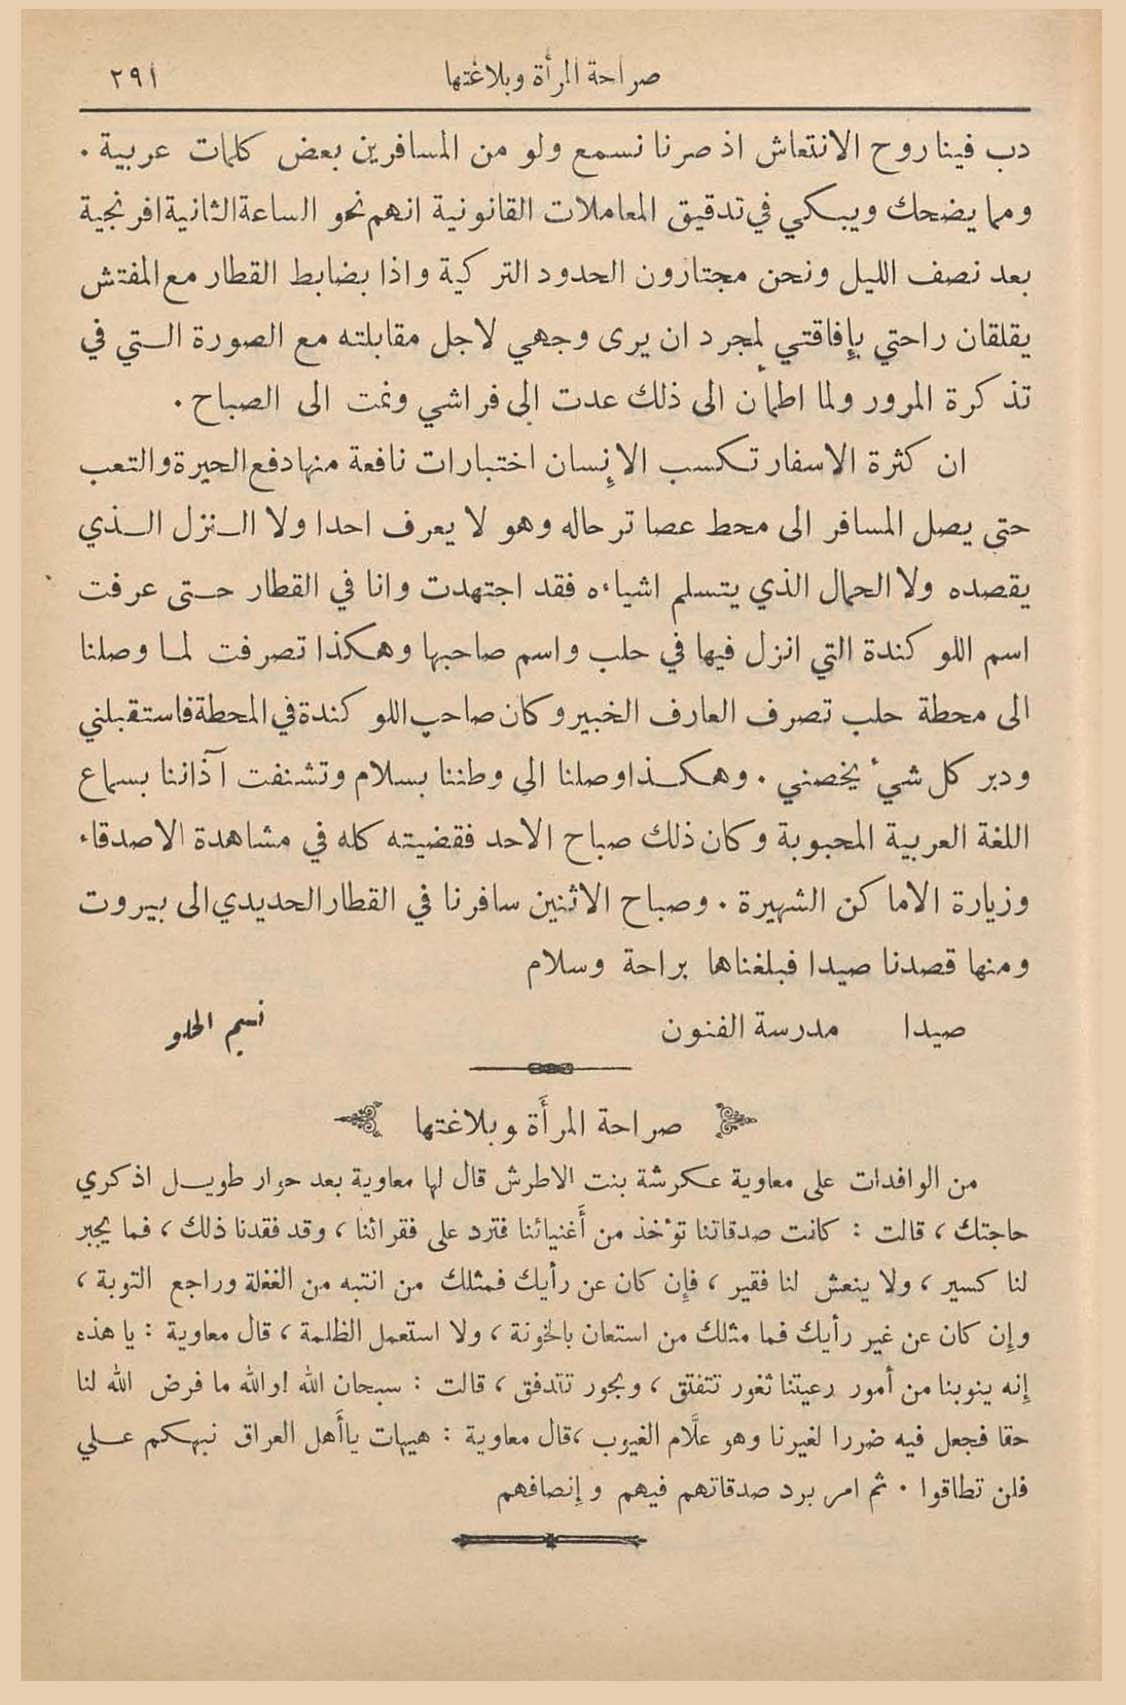 صراحة المرأة وبلاغتها ٢٩١
دب فينا روح الانتعاش اذ صرنا نسمع ولو من المسافرين بعض كلمات عربية .
ومما يضحك ويبكي في تدقيق المعاملات القانونية انهم نحو الساعة الثانية افرنجية
بعد نصف الليل ونحن مجتازون الحدود التركية واذا بضابط القطار مع المفتش
يقلقان راحتي بإفاقتي لمجرد ان يرى وجهي لاجل مقابلته مع الصورة التي في
تذكرة المرور ولما اطمأن الى ذلك عدت الى فراشي ونمت الى الصباح .
ان كثرة الاسفار تكسب الانِسان اختبارات نافعة منها دفع الحيرة والتعب
حتى يصل المسافر الى محط عصا ترحاله وهو لا يعرف احدا ولا النزل الذي
يقصده ولا الحمال الذي يتسلم اشياءه فقد اجتهدت وانا في القطار حتى عرفت
اسم اللوكندة التي انزل فيها في حلب واسم صاحبها وهكذا تصرفت لما وصلنا
الى محطة حلب تصرف العارف الخبير وكان صاحب اللوكندة في المحطة فاستقبلني
ودبر كل شيء يخصني . وهكذا وصلنا الى وطننا بسلام وتشنفت آذاننا بسماع
اللغة العربية المحبوبة وكان ذلك صباح الاحد فقضيته كله في مشاهدة الاصدقاء
وزيارة الاماكن الشهيرة . وصباح الاثنين سافرنا في القطار الحديدي الى بيروت
ومنها قصدنا صيدا فبلغناها براحة وسلام
صيدا مدرسة الفنون نسيم الحلو
صراحة المرأَة وبلاغتها
من الوافدات على معاوية عكرشة بنت الاطرش قال لها معاوية بعد حوار طويل اذكري
حاجتك ، قالت : كانت صدقاتنا تؤخذ من أَغنيائنا فترد على فقرائنا ، وقد فقدنا ذلك ، فما يجبر
لنا كسير ، ولا ينعش لنا فقير ، فإن كان عن رأيك فمثلك من انتبه من الغفلة وراجع التوبة ،
وإن كان عن غير رأيك فما مثلك من استعان بالخونة ، ولا استعمل الظلمة ، قال معاوية : يا هذه
إنه ينوبنا من أمور رعيتنا ثغور تتفتق ، وبحور تتدفق ، قالت : سبحان الله ! والله ما فرض الله لنا
حقا فجعل فيه ضررا لغيرنا وهو علَّام الغيوب ، قال معاوية : هيهات ياأَهل العراق نبهكم علي
فلن تطاقوا . ثم امر برد صدقاتهم فيهم وإنصافهم